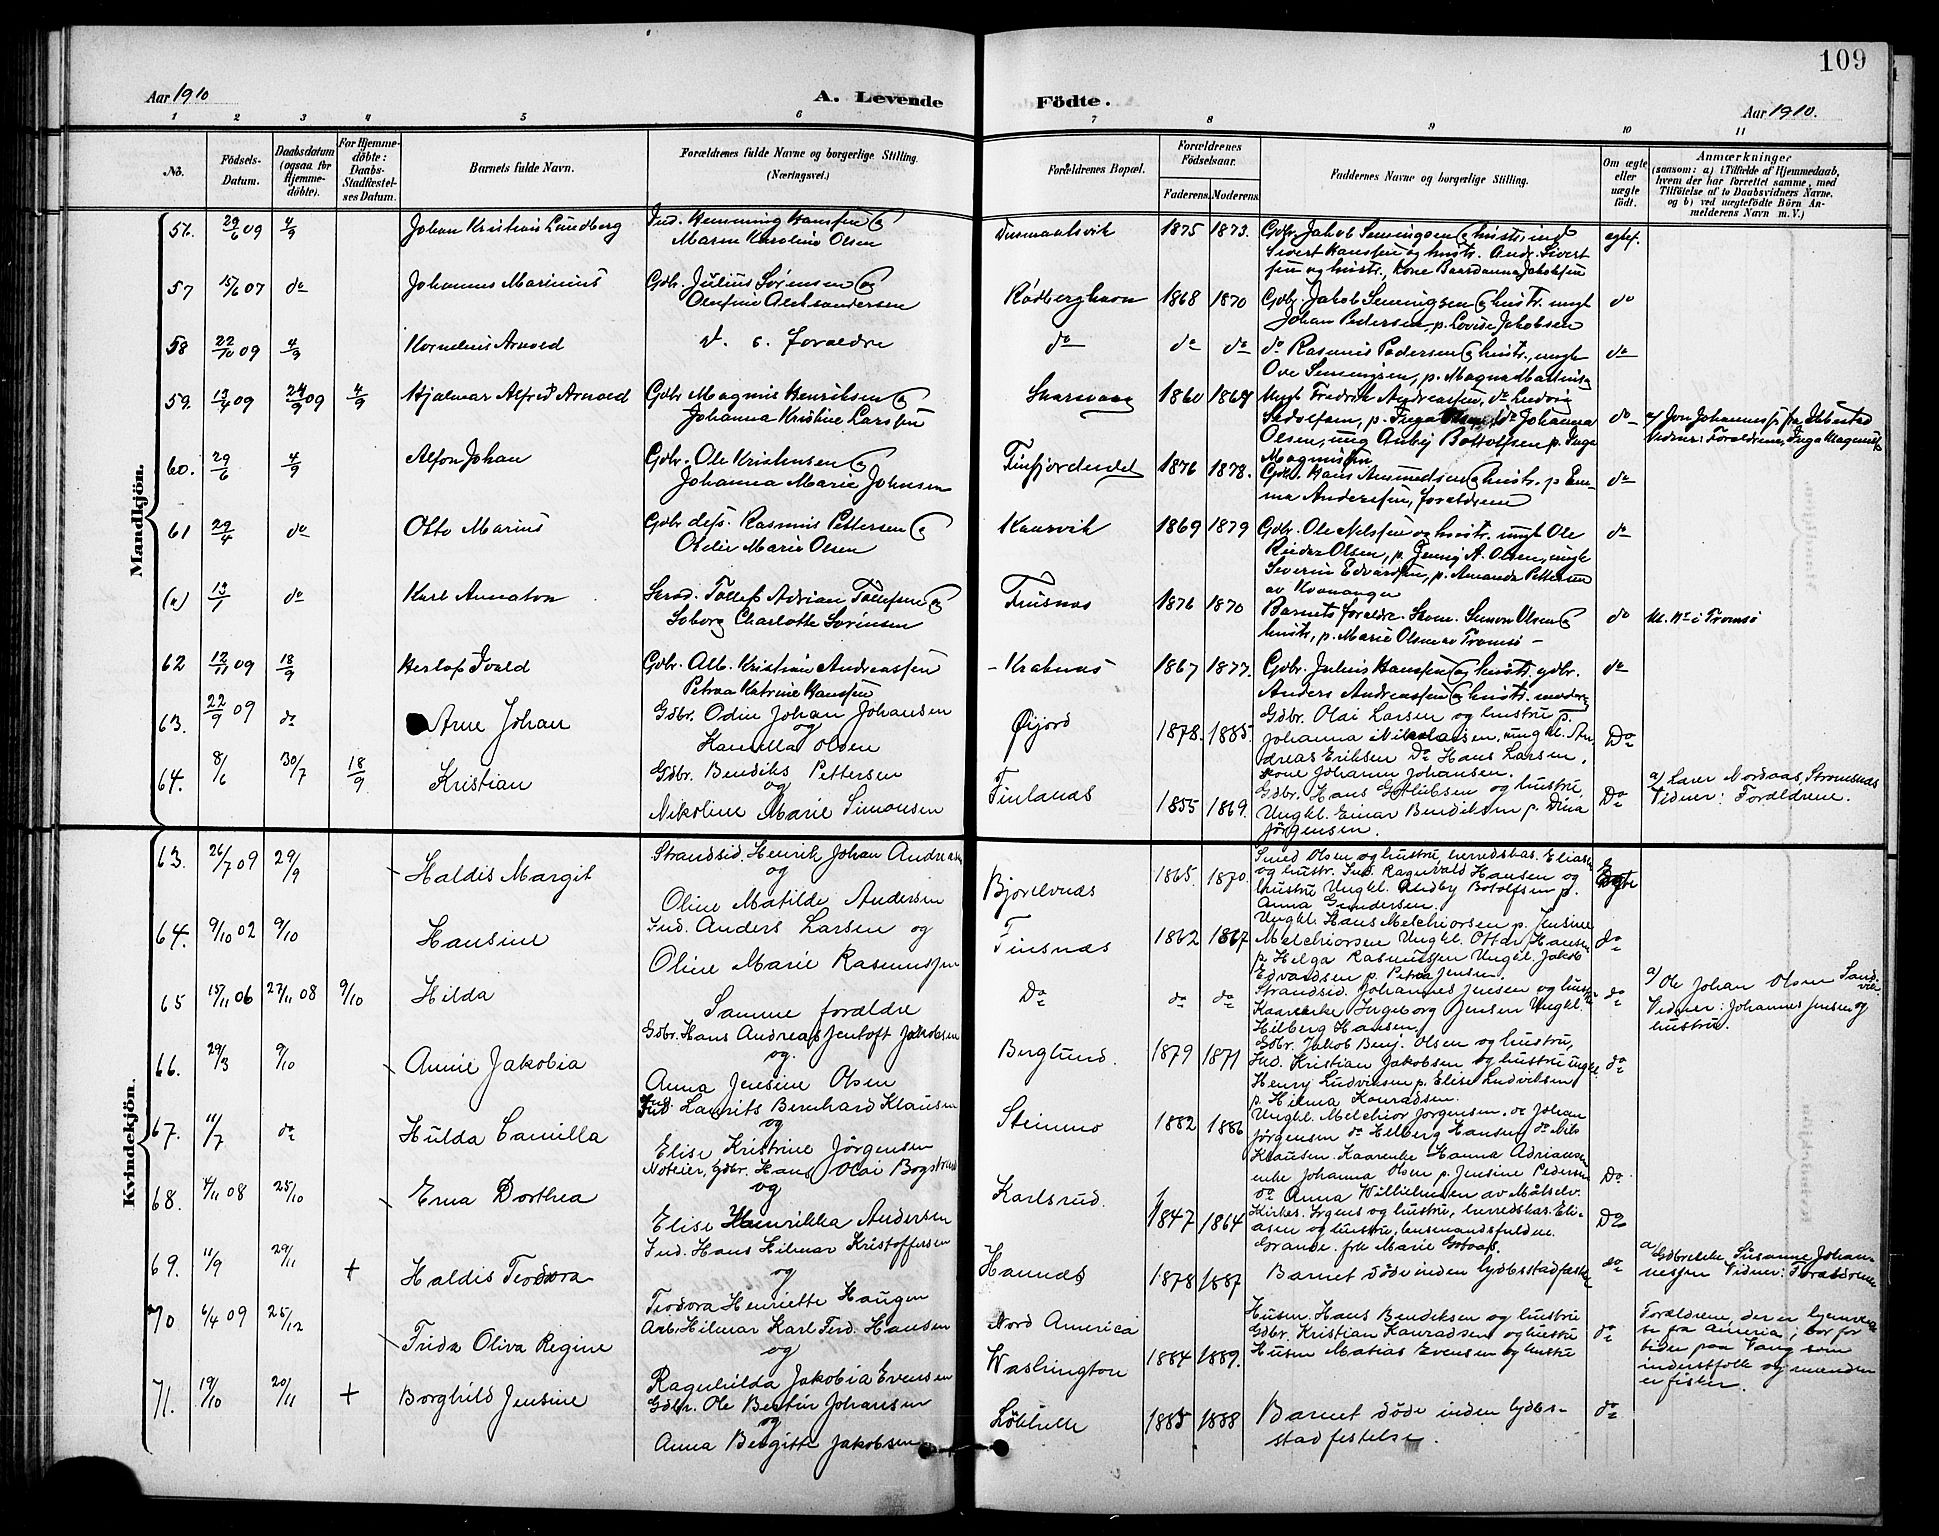 109
Aar 1910
A. Levende
Födte.
Aar 1910.
1 2 3 4 5 6 7 8 9 10 11
No.
Födsels-
Datum.
Daabsdatum
(ogsaa for
Hjemme-
döbte).
For Hjemme-
döbte:
Daabs-
Stadfestel-
ses Datum.
Barnets fulde Navn.
Forældrenes fulde Navne og borgerlige Stilling.
(Næringsvei.)
Forældrenes Bopæl.
Forældrenes
Födselsaar.
Faderens. Moderens.
Faddernes Navne og borgerlige Stilling.
Om ægte
eller
uægte
födt.
Anmærkninger
(saasom: a) i Tilfælde af Hjemmedaab,
hvem der har forrettet samme, med
Tilföielse af to Daabsvidners Navne,
og b) ved uægtefödte Börn An-
melderens Navn m. V.)
Mandkjön.
56. 29/6 09 4/9 Johan Kristian Lundberg
Ind. Henning Hanssen og
Maren Karoline Olsen
1875 1873. Gdbr. Jakob Simingsen og hustr. ind
Sivert Hanssen og hustr. Andr. Sivert
sen og hustr., Kone Jakobsen
egtef.
57 15/6 07 do Johannes Marinius
Gdbr. Julius Sørensen og
Olufine Aleksandersen
Rødberghavn 1868 1870 Gdbr. Jakob Simingsen og hustr. ungk
Johan Pedersen, p. Lovise Jakobsen
do
58 22/10 09 4/9 Kornelius Arnold
d. s. foreldre
do do do do Rasmus Pedersen og hustr., ungk
Ove Simingsen, p. Magna
do
59. 13/4 09 24/9 09 4/9 Hjalmar Alfred Arnold
Gdbr Magnus Henriksen og
Johanna Kristine Larssen
1860 1869 Ungk Fredrik Andreassen, do Ludvig
p. Inga Olsen, do Johanna
Olsen, ung Botolfsen p. Inga
Magnussen
do a) Jon Johanness. fra Ibestad
Vidner: Forældrene, Inga Magnuss.
60. 29/6 4/9 Alfon Johan
Gdbr. Ole Kristensen og
Johanna Marie Johnsen
Finfjordeidet 1876 1878. Gdbr. Hans Amundsen og hustr. p Em-
ma Anderssen, foreldrene
do
61 29/4 do Otto Marius
Gdbr dess. Rasmus Pettersen og
Otelie Marie Olsen
Kaarvik 1869 1879 Gdbr. Ole Nilssen og hustr. ungk Ole
Rieder Olsen, p. Jenny A. Olsen, ungk
Severin Edvardsen, p. Amanda Pettersen
av Kvænangen
do
(a) 13/1 do Karl Annaton
Skrad. Tollefs Adrian Tollefsen og
Soborg Charlotte Sørensen
Finsnæs 1876 1870 Barnets foreldre. Skom. Simon Olsen og
hustr, p. Marie Olsen av Tromsø –
do M. No i Tromsø
62 12/11 09 18/9 Herlof Ivald
Gdbr. Alb. Kristian Andreassen
Petrea Katrine Hanssen
Kraknæs 1867 1877. Gdbr. Julius Hanssen og hustr. gdbr.
Anders Andreassen og hustr.
do
63. 22/9 09 do Arne Johan
Gdbr. Odin Johan Johansen
og
Kamilla Olsen
Øijord 1878. 1885. Gdbr. Olai Larsen og hustru p.
Johanna Nikolaisen, ungkl. An-
dreas Eriksen Do Hans Larsen,
Kone Johanne Johansen.
Do
64. 8/6 30/7 18/9 Kristian
Gdbr. Bendiks Pettersen
og
Nikoline Marie Simonsen
Finlands 1855 1869. Gdbr. Hans Gotliebsen og hustru,
Ungkl. Einar Bendiksen p. Dina
Jørgensen.
Do a) Lærer Nordaas, Strømsnæs
Vidner: Forældrene.
Kvindekjön.
63. 26/7 09 29/9 Haldis Margit
Strandsid. Henrik Johan Andreas
og
Oline Matilde Andersen
Bjorelvnæs 1865. 1870. Smed Olsen og hustru, herredskas. Eliasen
og hustr. Ind. Ragnvald Hansen og
hustru Ungkl. Botolfsen p.
Anna Gundersen.
Egte
64. 9/10 02 9/10 Hansine
Ind. Anders Larsen og
Oline Marie Rasmussen
Finsnæs 1862 1867 Ungkl. Hans Melchiorsen p. Jensine
Melchiorsen Ungkl. Ottar Hansen
p. Helga Rasmussen Ungkl. Jakob
Edvardsen p. Petra Jensen.
do
65 15/11 06 27/11 08 9/10 Hilda
Samme forældre
Do do do Strandsid. Johannes Jensen og hustru
Kaarenke Ingeborg Jensen Ungkl.
Hilberg Hansen.
do a) Ole Johan Olsen Sand-
vik
Vidner: Johannes Jensen og
hustru.
66. 29/3 9/10 Annie Jakobia
Gdbr. Hans Andreas Jentoft Jakobsen
og.
Anna Jensine Olsen
Berglund. 1879 1871 Gdbr. Jakob Benj. Olsen og hustru,
Ind. Kristian Jakobsen og hustru ungkl.
Henrj Ludviksen p. Elise Ludviksen
p. Hilma Konradsen.
do
67. 11/7 do Hulda Camilla
Ind. Laurits Bernhard Klausen
og
Elise Kristine Jörgensen
Steinmo 1882 1886 Ungkl. Melchior Jørgensen. do Johan
Jørgensen do Hilberg Hansen do Nils
Klausen. Kaarenke Hanna Adriansen
enke Johanna Olsen p. Jensine Pedersen
do Anna Willielmsen av Målselv.
Do
68. 4/11 08 25/10 Erna Dorthea
Noteier, Gdbr. Hans Olai Bogstrand
og
Elise Henrikka Andersen
Karlsrud. 1847 1864 Kirkes. Irgens og hustru, herredskas. Eli-
asen og hustru, lensmandsfuldm.
Grande. frk Marie
Do
69. 11/9 29/11 + Haldis Teodora
Ind. Hans Hilmar Kristoffersen
og
Teodora Henriette Haugen
Hannæs 1878 1887 Barnet døde inden lydesstadfæstelse
do a) Gdbrenke Susanne Johan-
nesen Vidner: Forældrene
70 6/4 09 25/12 Frida Oliva Regine
Arb. Hilmar Karl Ferd. Hansen
og
Ragnhilda Jakobia Evensen
Nord America
Washington 1884 1889. Husm. Hans Bendiksen og hustru
Gdbr. Kristian Konradsen og hustru
Husm Matias Evensen og hustru
do Forældrene, der er hjemreist
se fra America, bor for
tiden paa Vang som
inderstfolk og manden
er fisker.
71. 19/10 20/11 + Borghild Jensine
Gdbr. Ole Bertin Johansen
og
Anna Bergitte Jakobsen
1885 1888 Barnet døde inden lydes-
stadfestelse.
do